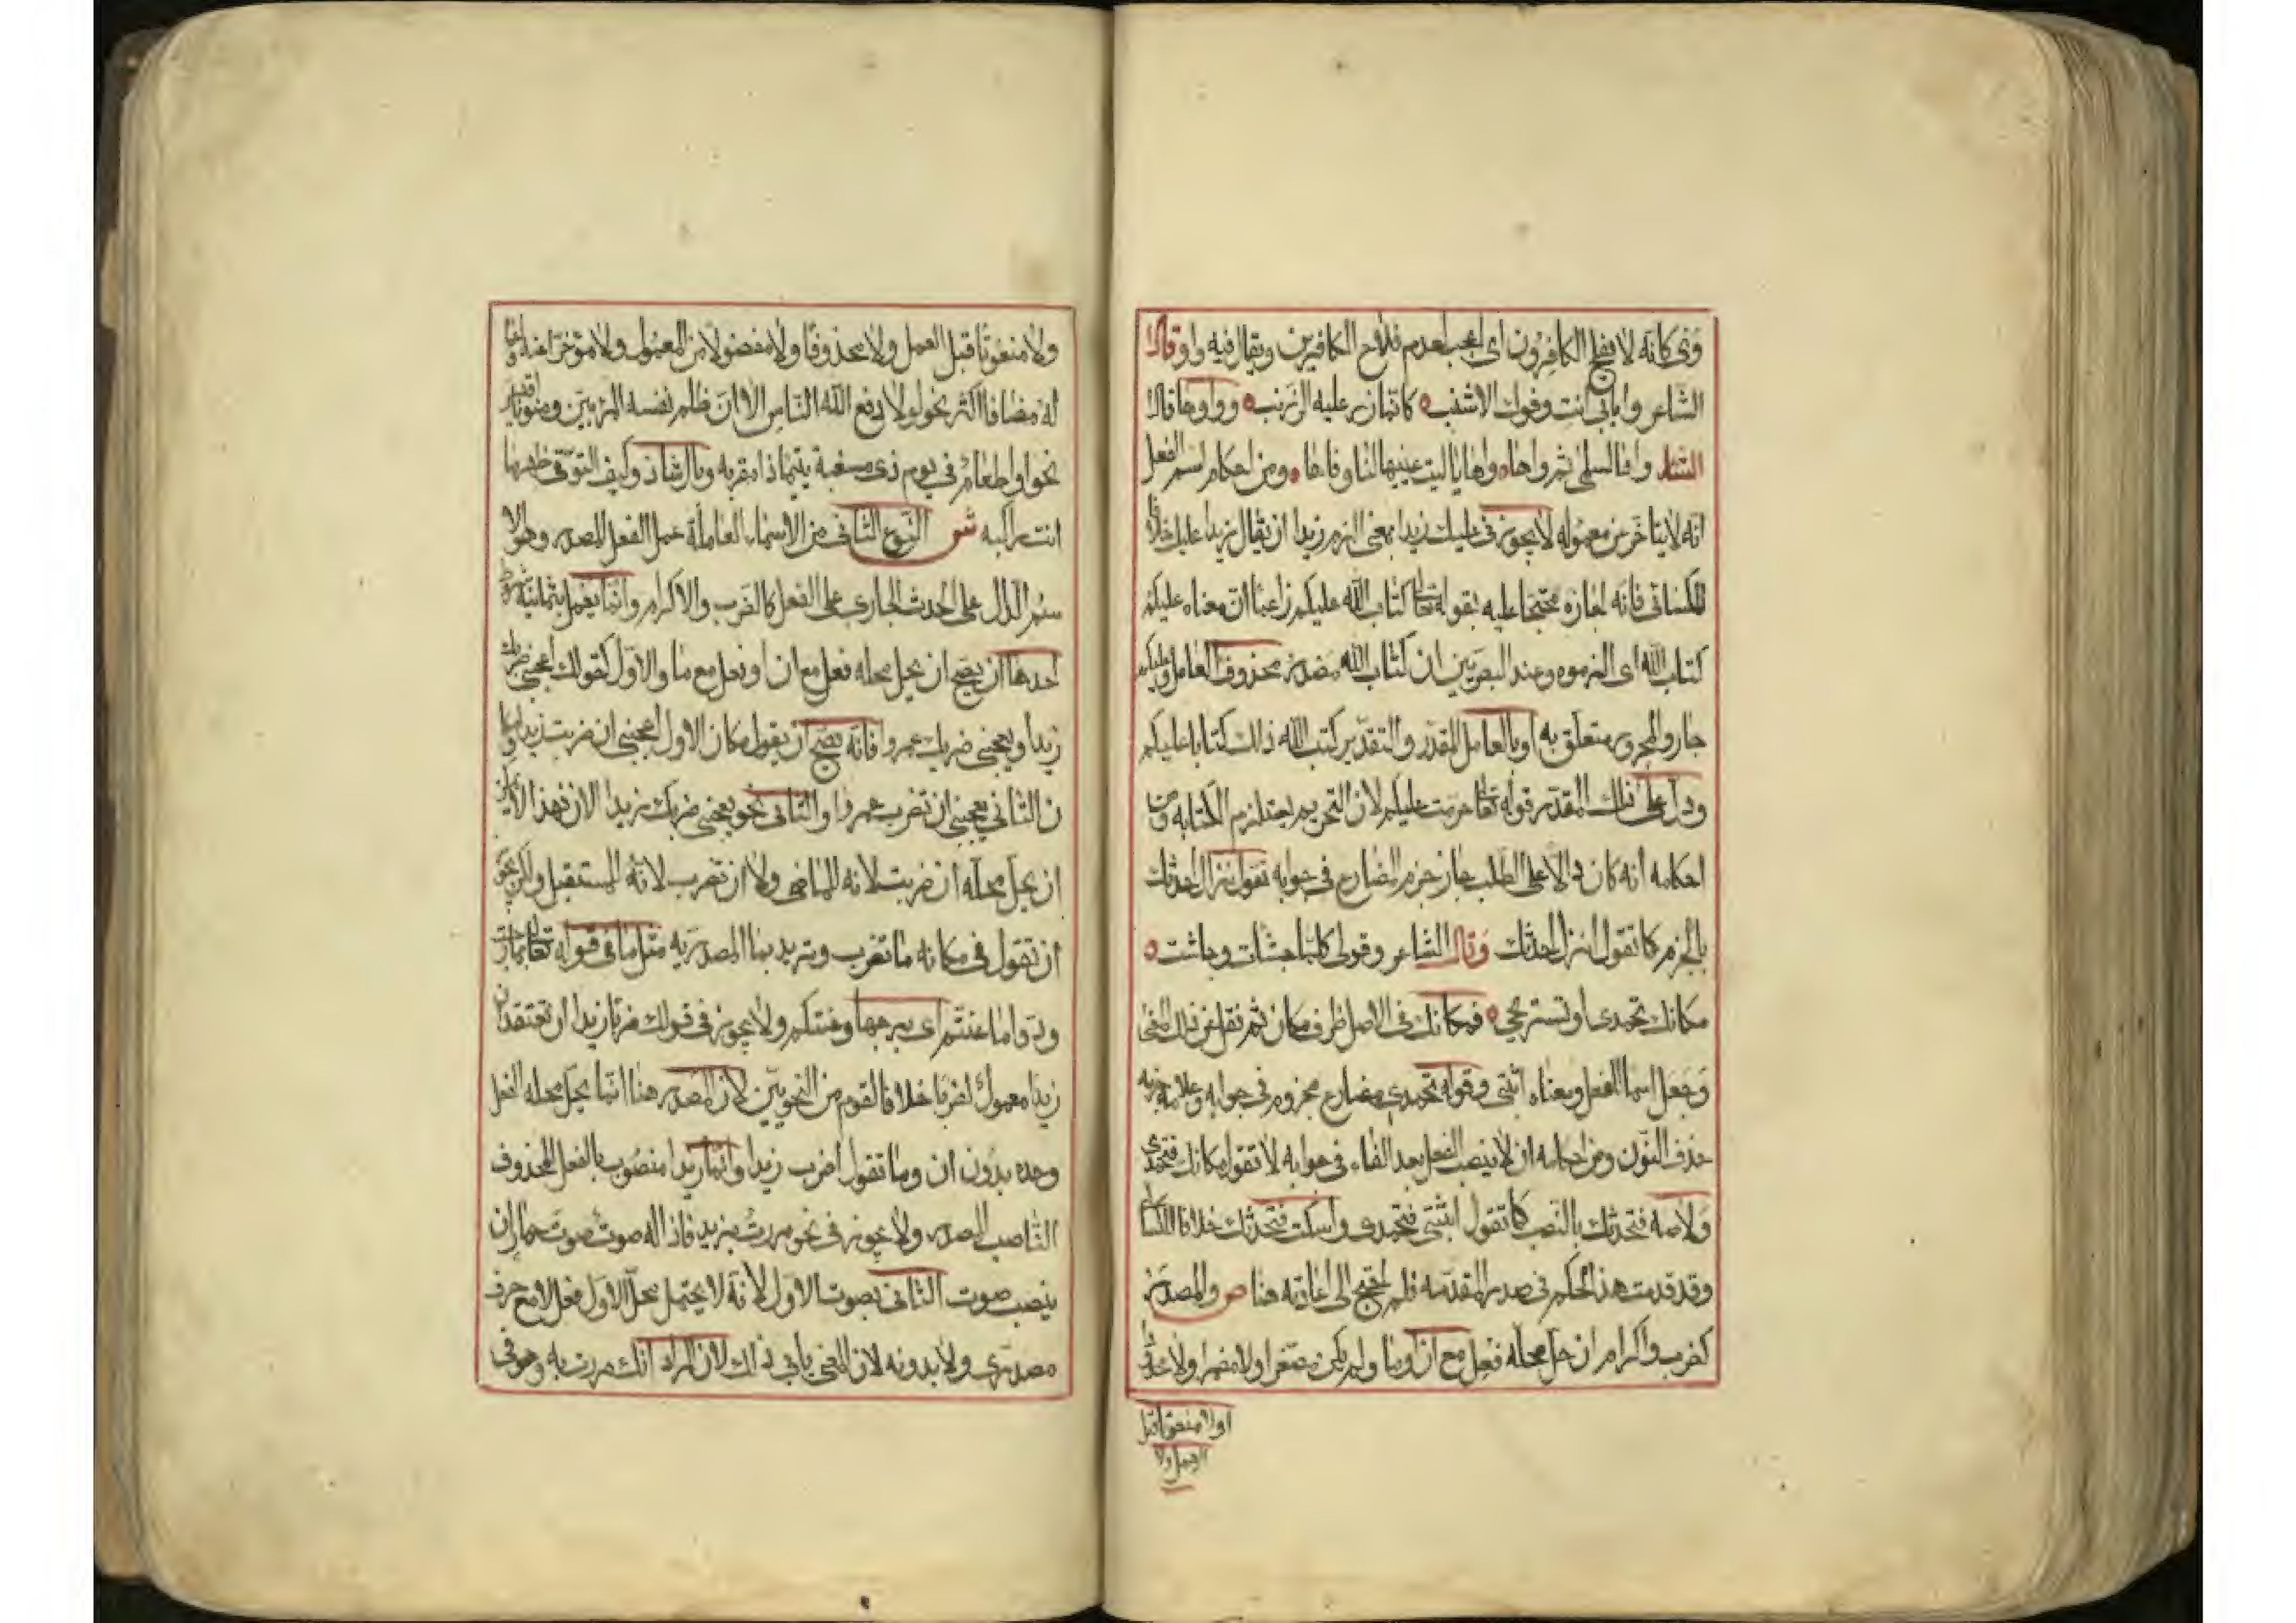 وى كانه لا يفلح الكافرون اى اعجب لعدم فلاح الكافرين ويقال فيه وا وقال
الشاعر وا بابى انت وفوك الاشنب كانما ذر عليه الزرنب وواوها قال
الشاعر واها لسلمى ثم واها واها يا ليت عينيها لنا وفاها ومن احكام اسم الفعل
انه لا يتاخر عن معموله لا يجوز فى عليك زيدا بمعنى الزم زيدا ان يقال زيدا عليك خلافا
للكسائى فانه اجازه محتجا عليه بقوله تعالى كتاب الله عليكم زاعما ان معناه عليكم
كتاب الله اى الزموه وعند البصريين ان كتاب الله مصدر محذوف العامل وعليكم
جار والمجرور متعلق به او بالعامل المقدر والتقدير كتب الله ذلك كتابا عليكم
ودل على ذلك المقدر قوله تعالى حرمت عليكم لان التحريم يستلزم الكتابه ومن
احكامه انه كان دالا على الطلب جاز جزم المضارع فى جوابه تقول نزال احدثك
بالجزم كما تقول انزل احدثك وقال الشاعر وقولى كلما جشات وجاشت
مكانك تحمدى او تستريحى فمكانك فى الاصل ظرف مكان ثم نقل عن ذلك المعنى
وجعل اسما للفعل ومعناه اثبتى وقوله تحمدى مضارع مجزوم فى جوابه وعلامة جزمه
حذف النون ومن احكامه ان لا ينصب الفعل بعد الفاء فى جوابه لا تقول مكانك فتحمدى
ولا صه فنحدثك بالنصب كما تقول اثبتى فتحمدى واسكت فنحدثك خلافا للكسائى
وقد قدمت هذا الحكم فى صدر المقدمه فلم احتج الى اعادته هنا ص والمصدر
كضرب واكرام ان حل محله فعل مع ان او ما ولم يكن مصغرا ولا مضمرا ولا محدودا
اولا منعوتا قبل
العمل ولا
ولا منعوتا قبل العمل ولا محذوفا ولا مفصولا من المعمول ولا مؤخرا عنه واعما
له مضافا اكثر نحو ولولا دفع الله الناس الا ان ظلم نفسه المرء بين ومنونا اقيس
نحو او اطعام فى يوم ذى مسغبة يتيما ذا مقربه وبال شاذ وكيف التوقى ظهر ما
انت راكبه ش النوع الثانى من الاسماء العاملة عمل الفعل المصدر وهو الا
سم الدال على الحدث الجارى على الفعل كالضرب والاكرام وانما يعمل بثمانية شروط
احدها ان يصح ان يحل محله فعل مع ان او فعل مع ما والاول كقولك اعجبنى ضربك
زيدا ويعجبنى ضربك عمروا فانه يصح ان يقول مكان الاول اعجبنى ان ضربت زيدا ومكا
ن الثانى يعجبنى ان تضرب عمروا والثانى نحو يعجبنى ضربك زيدا الان فهذا لا يمكن
ان يحل محله ان ضربت لانه للماضى ولا ان تضرب لانه للمستقبل ولكن يجوز
ان تقول فى مكانه ما تضرب وتريد بما المصدريه مثل ما فى قوله تعالى بما رحبت
ودوا ما عنتم اى برحبها وعنتكم ولا يجوز فى قولك ضربا زيدا ان تعتقد ان
زيدا معمول لضربا خلافا لقوم من النحويين لان المصدر هنا انما يحل محله الفعل
وحده بدون ان وما تقول اضرب زيدا وانما زيدا منصوب بالفعل المحذوف
الناصب للمصدر ولا يجوز فى نحو مررت بزيد فاذا له صوت صوت حمار ان
ينصب صوت الثانى بصوت الاول لانه لا يحتمل محل الاول فعل لا مع حرف
مصدرى ولا بدونه لان المعنى يابى ذلك لان المراد انك مررت به وهو فى